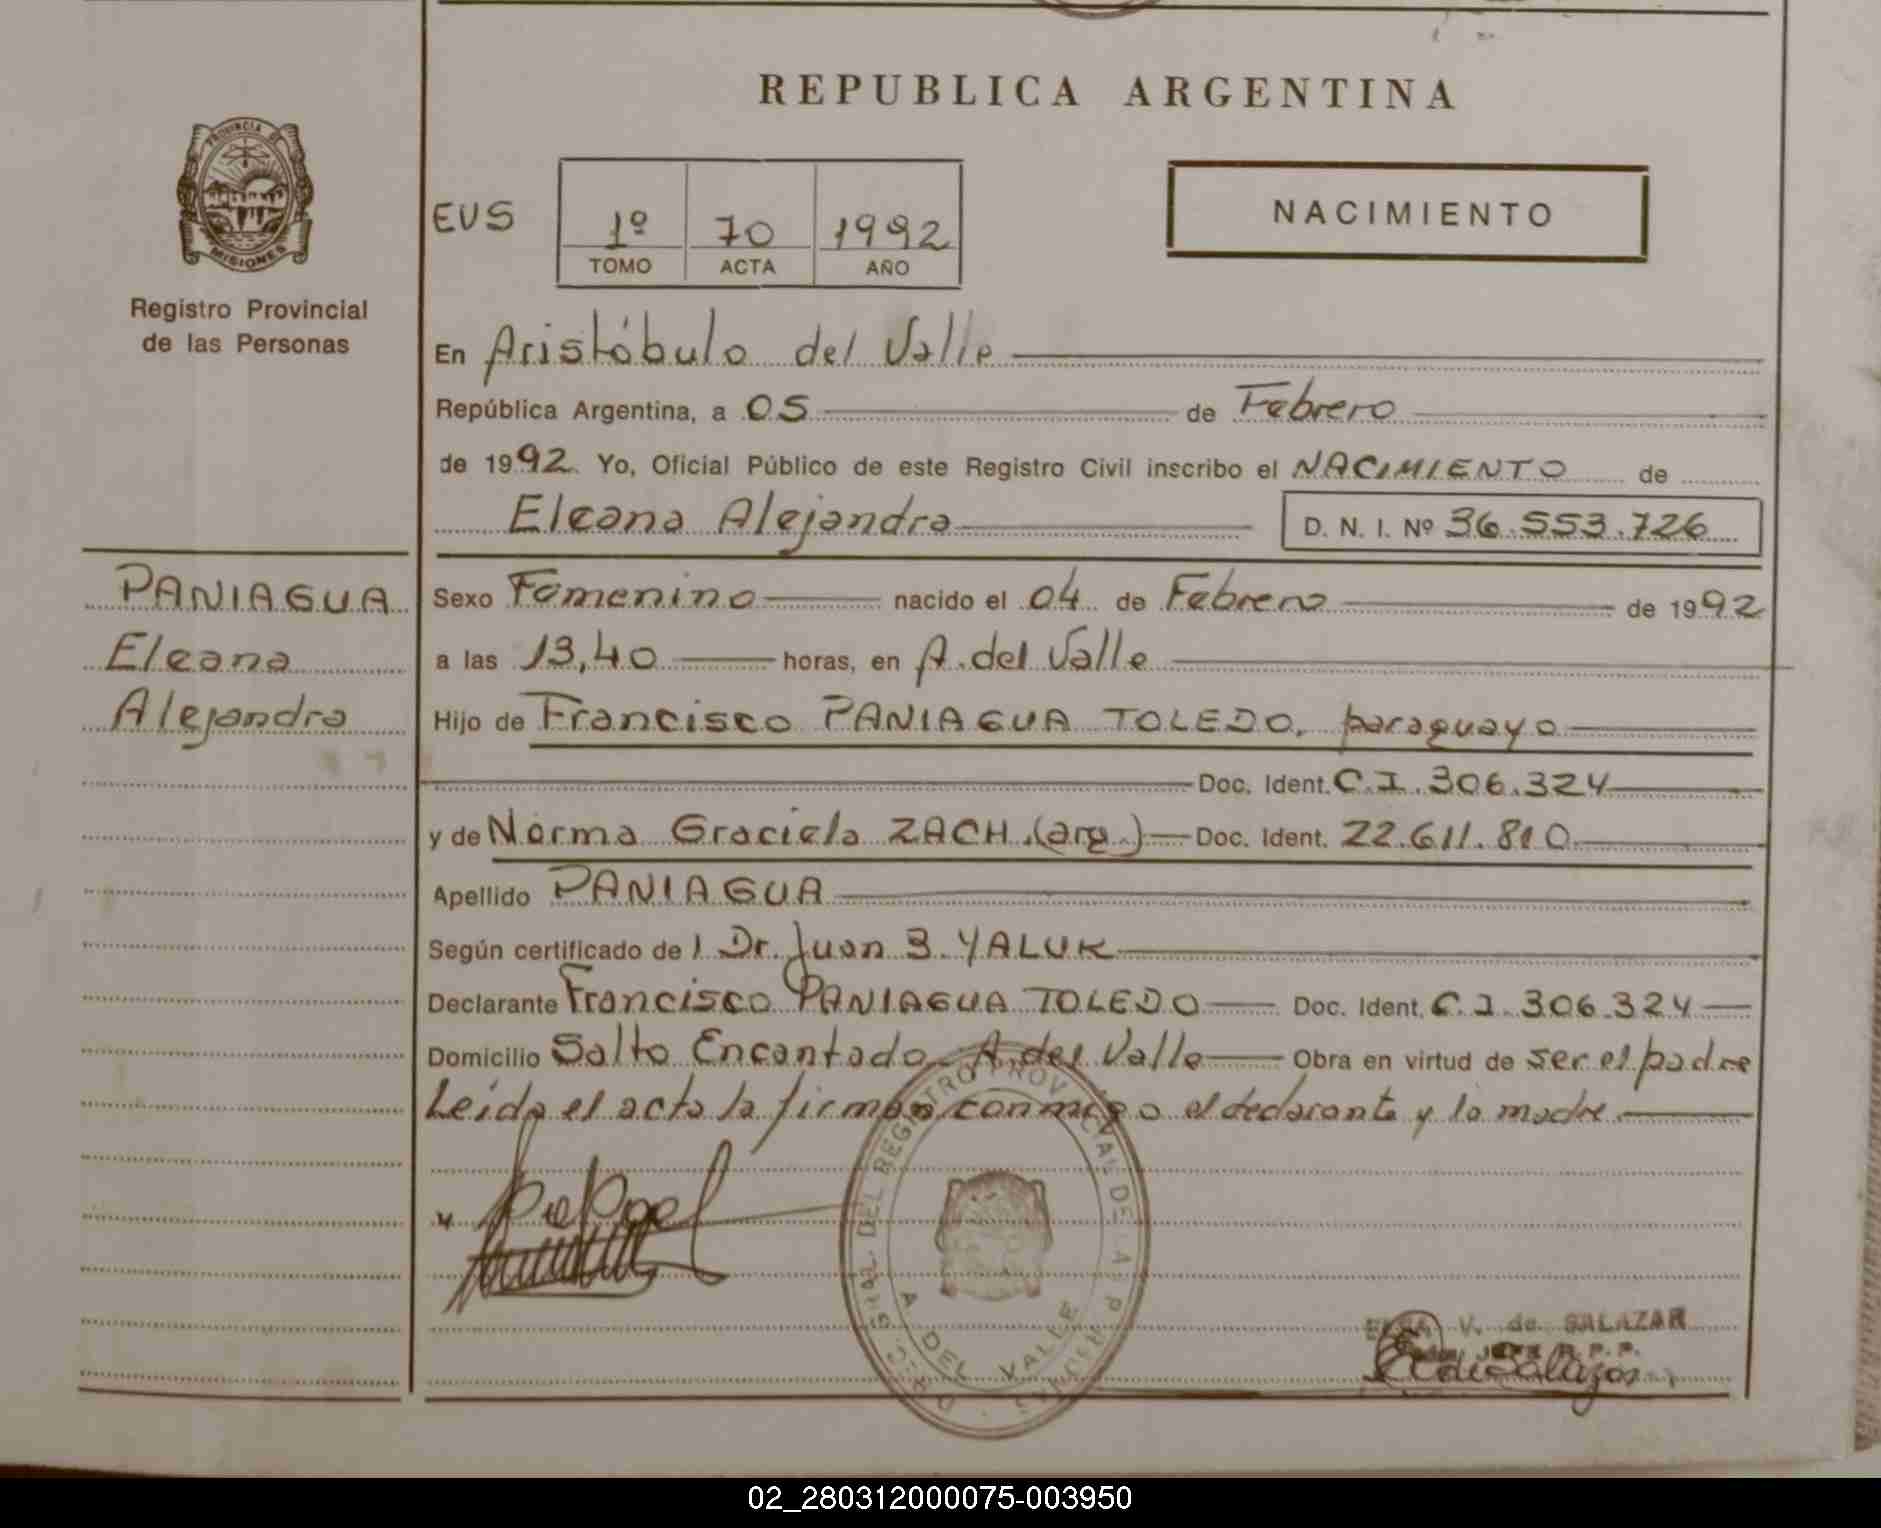 REPUBLICA ARGENTINA
PROVINCIA DE
MISIONES
Registro Provincial
de las Personas
EVS
1º 70 1992
TOMO ACTA AÑO
NACIMIENTO
En Aristóbulo del Valle
República Argentina, a 05 de Febrero
de 1992. Yo, Oficial Público de este Registro Civil inscribo el NACIMIENTO de
Eleana Alejandra D. N. I. Nº 36.553.726
PANIAGUA
Eleana
Alejandra
Sexo Femenino nacido el 04 de Febrero de 1992
a las 13,40 horas, en A. del Valle
Hijo de Francisco PANIAGUA TOLEDO, paraguayo
Doc. Ident. C.I. 306.324
y de Norma Graciela ZACH (arg.) Doc. Ident. 22.611.810
Apellido PANIAGUA
Según certificado de l Dr. Juan B. YALUK
Declarante Francisco PANIAGUA TOLEDO Doc. Ident. C.I. 306.324
Domicilio Salto Encantado A. del Valle Obra en virtud de ser el padre
Leída el acta la firman conmigo el declarante y la madre
DEL REGISTRO PROVINCIAL DE LA P
A DEL VALLE
V. de SALAZAR
JEFE R.P.P.
02_280312000075-003950